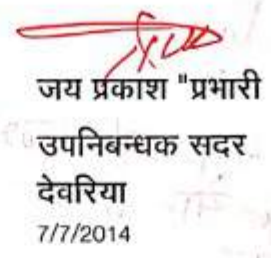 जय प्रकाश "प्रभारी
उपनिबन्धक सदर
देवरिया
7/7/2014